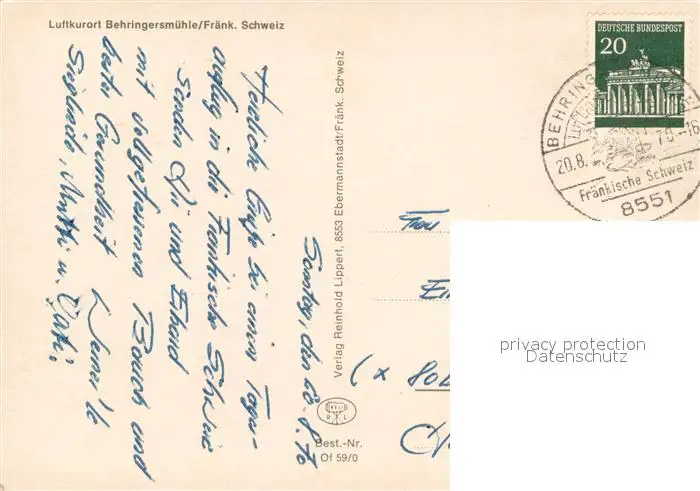 Luftkurort Behringersmühle/Fränk. Schweiz
Sonntag, den 20.8.70
Herzliche Grüße bei einem Tages-
ausflug in die Fränkische Schweiz
senden Dir und Erhard
mit vollgefressenen Bauch und
bester Gesundheit
Sieglinde, Mutti u. Vati!
Verlag Reinhold Lippert, 8553 Ebermannstadt/Fränk. Schweiz
R L
Best.-Nr.
Of 59/0
DEUTSCHE BUNDESPOST
20
BEHRING
20.8.70-16
Fränkische Schweiz
8551
Frau
(x 80
privacy protection
Datenschutz